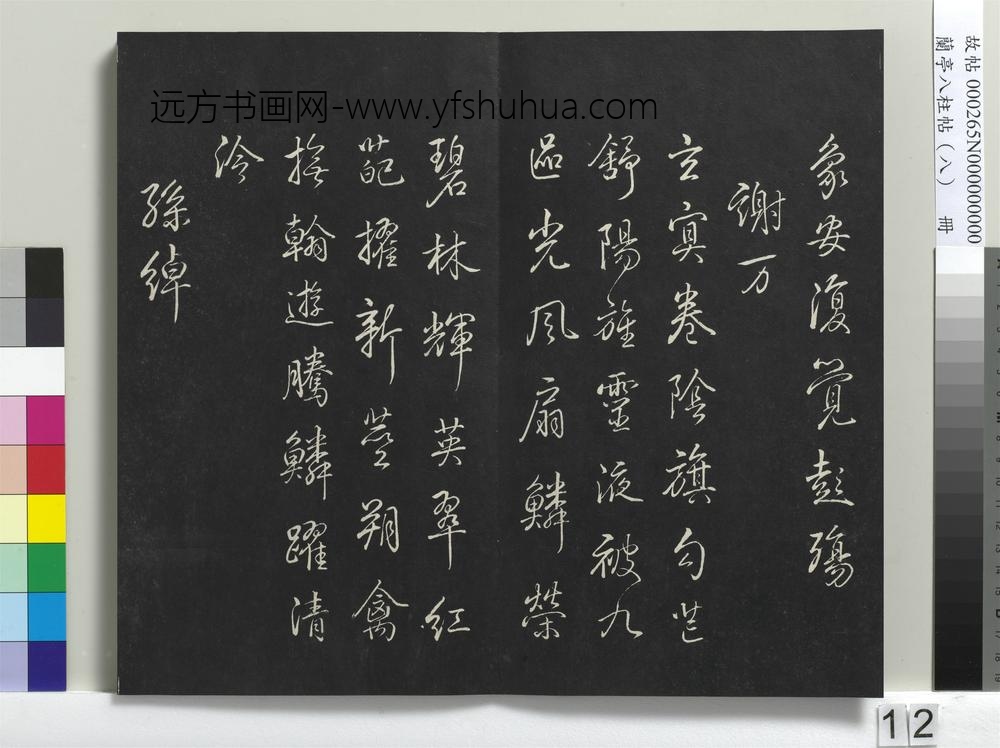 远方书画网-www.yfshuhua.com
故帖 000265N000000000
蘭亭八柱帖（八） 冊
象安復覺彭殤
謝万
玄冥卷陰旗勾芒
舒陽旌靈液被九
區光風扇鱗榮
碧林輝英翠紅
葩擢新莖翔禽
撫翰遊騰鱗躍清
泠
孫綽
12